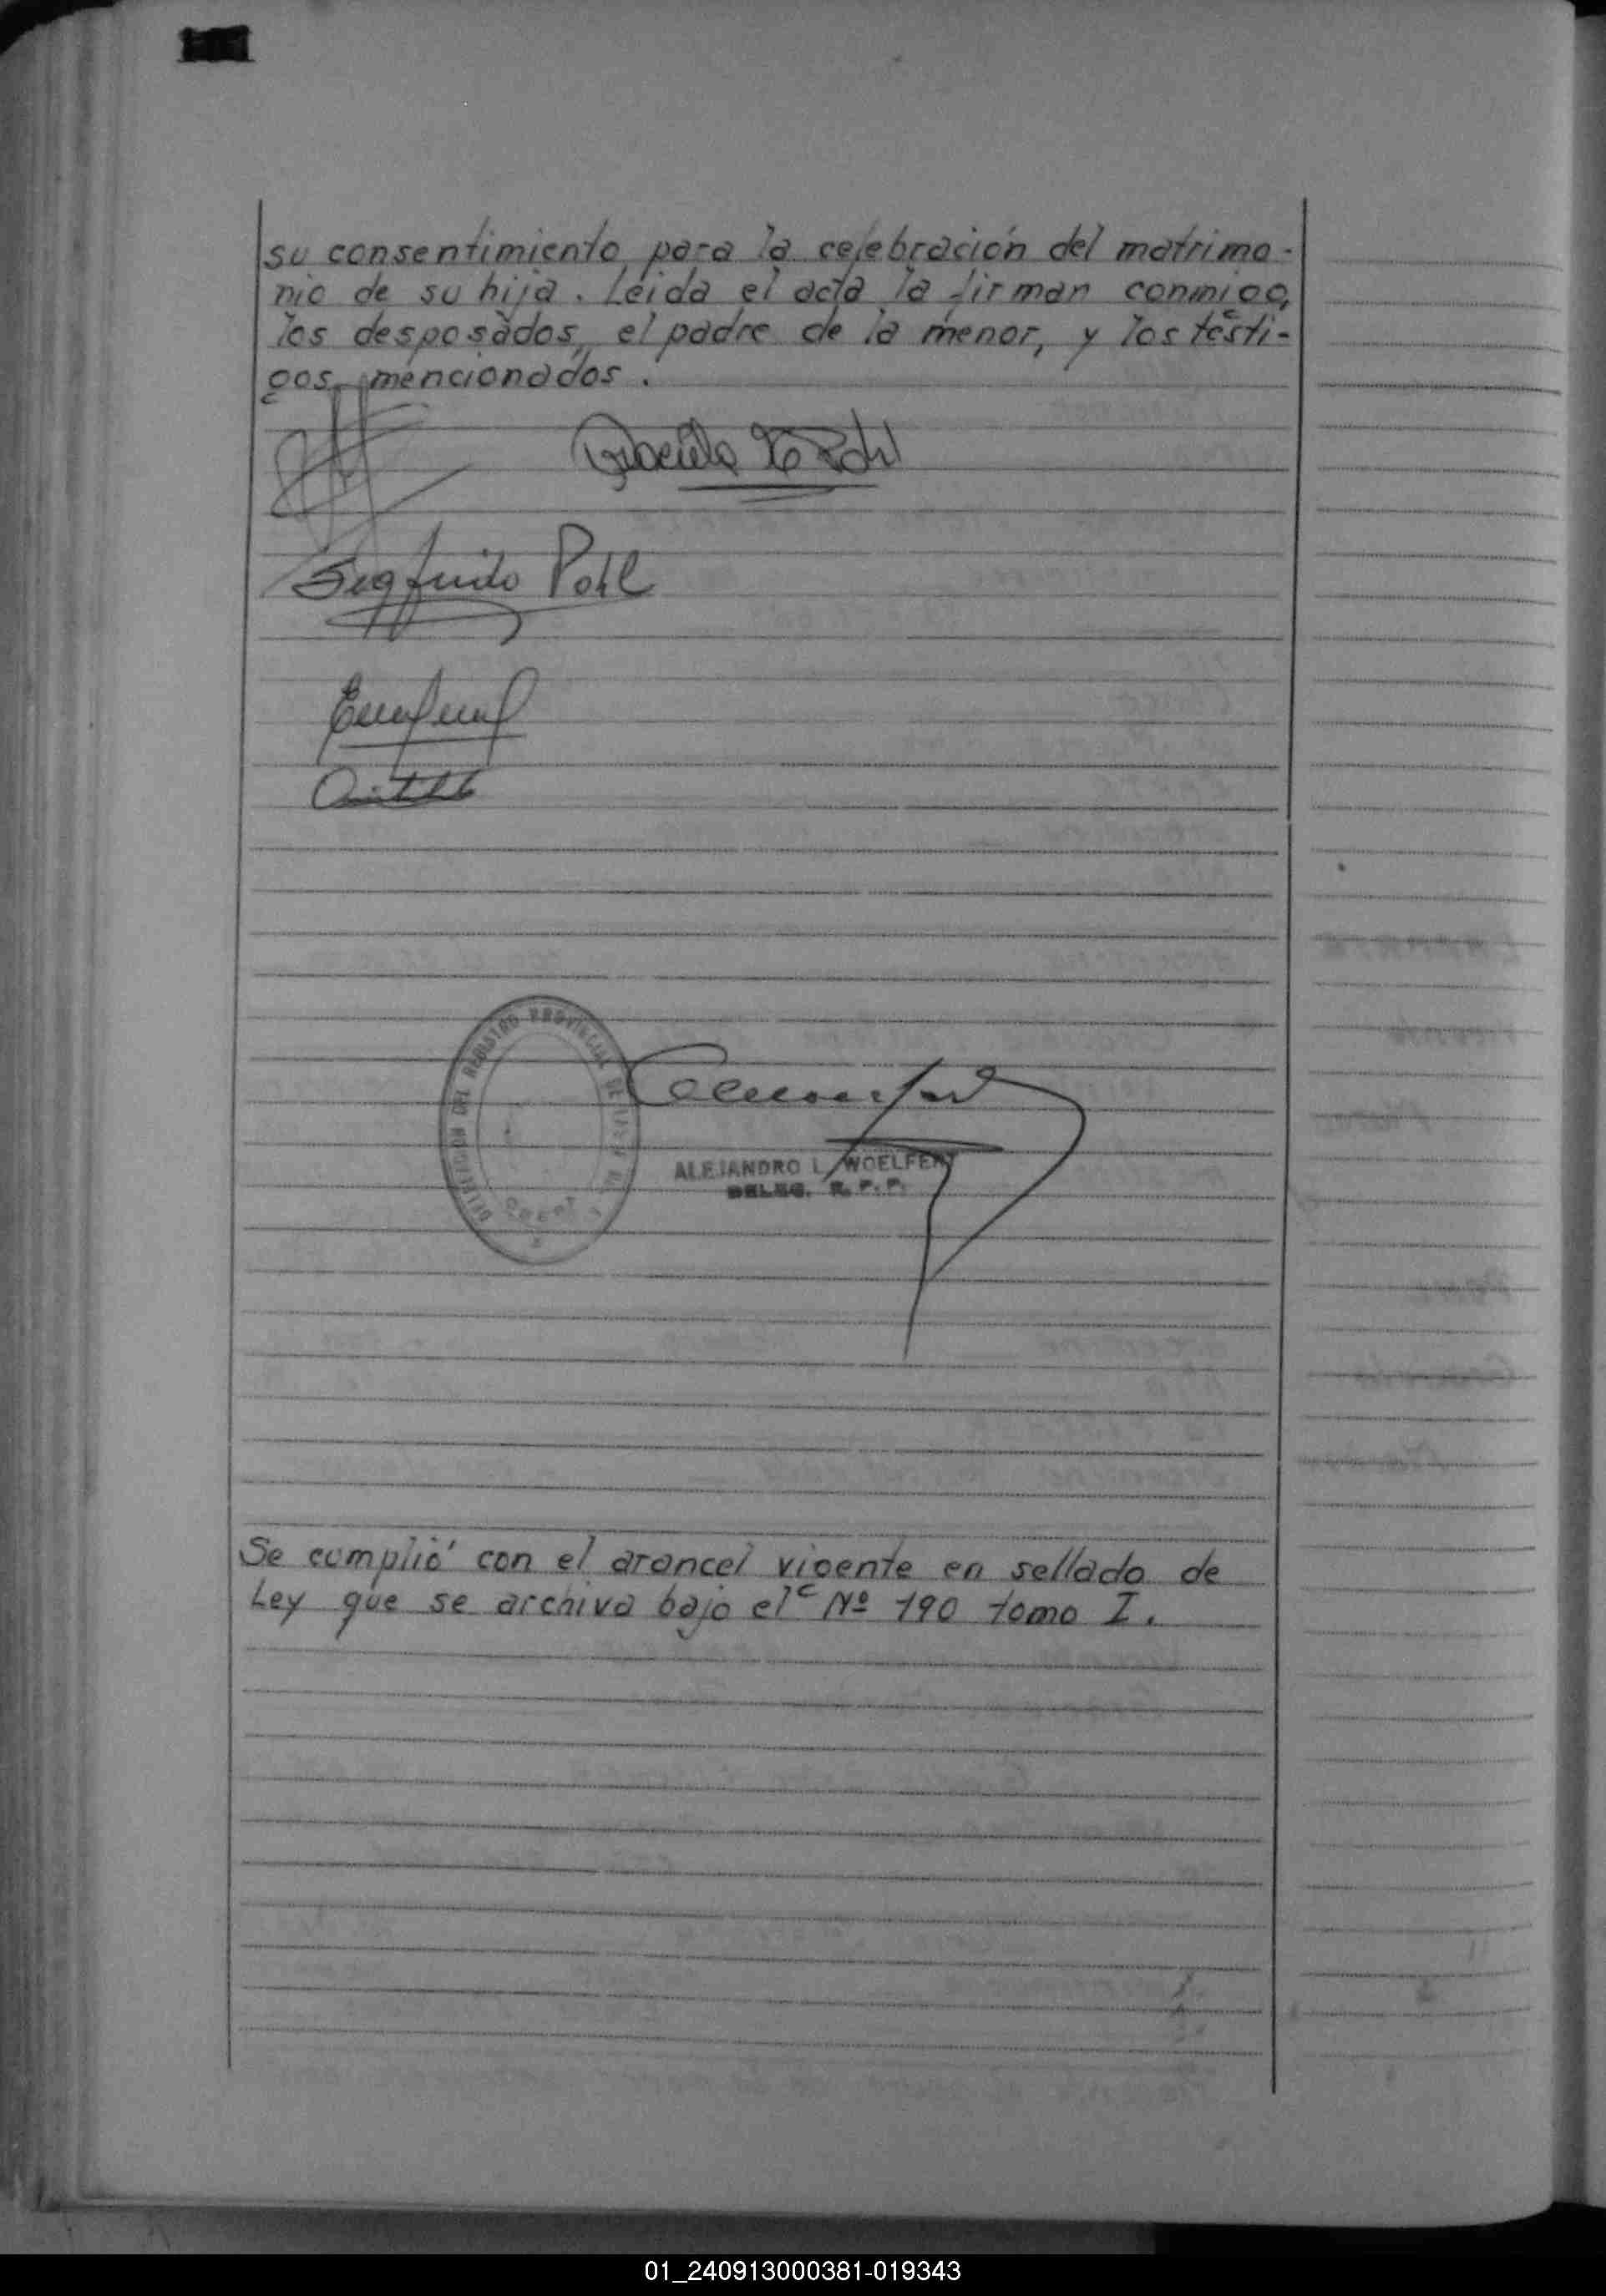 su consentimiento para la celebración del matrimo-
nio de su hija. Leida el acta la firman conmigo,
los desposados, el padre de la menor, y los testi-
gos mencionados.
Pohl
Segfrido Pohl
DIRECCION DEL REGISTRO PROVINCIAL DE
ALEJANDRO L. WOELFERT
DELEG. R. P. P.
Se cumplió con el arancel vigente en sellado de
Ley que se archiva bajo el Nº 190 tomo I.
01_240913000381-019343